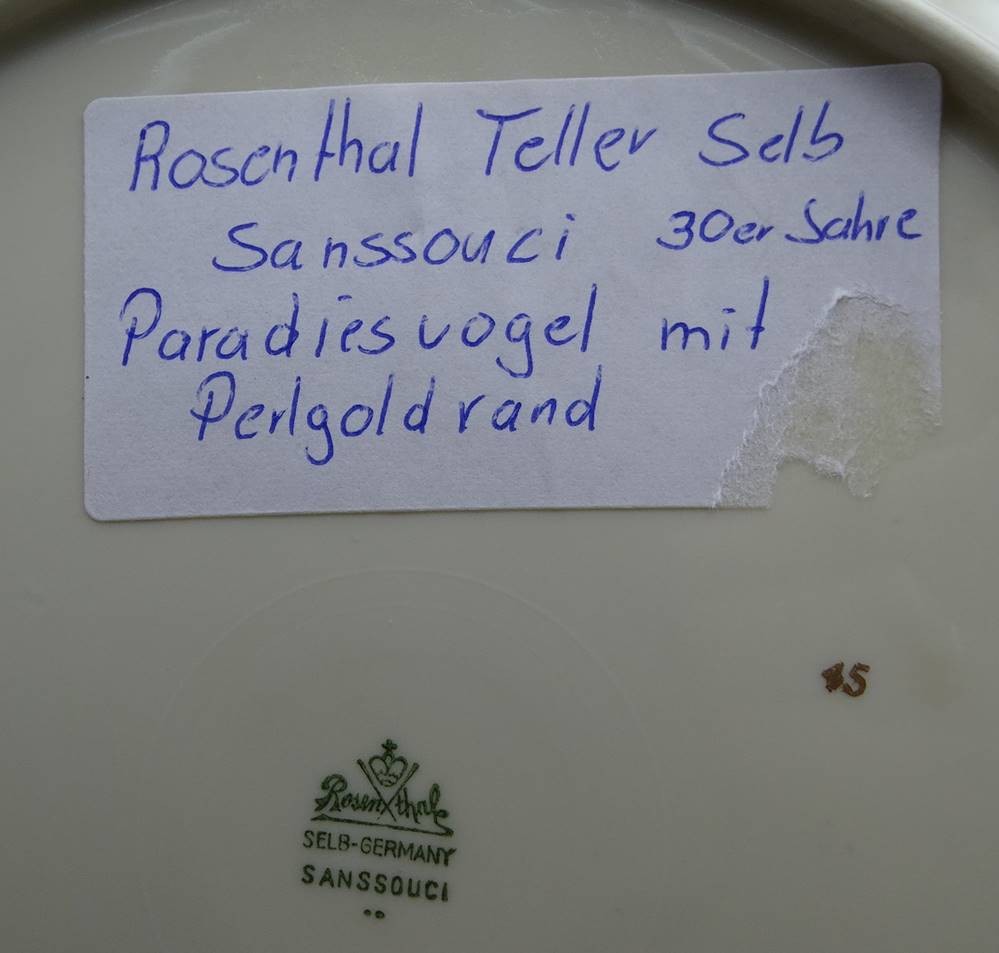 Rosenthal Teller Selb
Sanssouci 30er Jahre
Paradiesvogel mit
Perlgoldrand
5
Rosenthal
SELB-GERMANY
SANSSOUCI